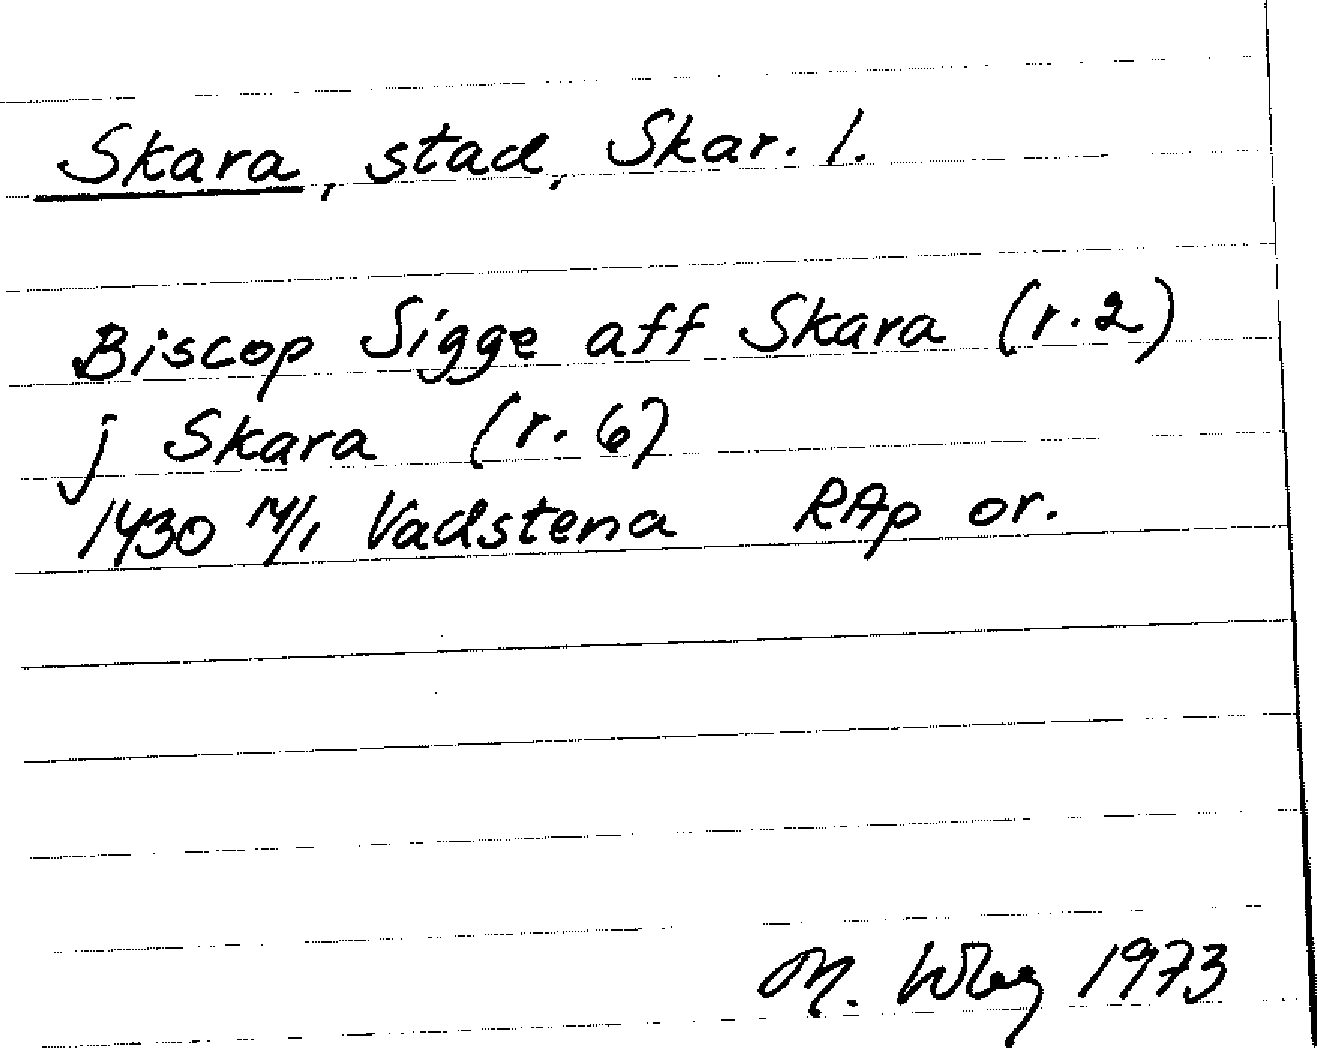 Skara, stad, Skar. l.
Biscop Sigge aff Skara (r. 2)
j Skara (r. 6)
1430 14/1 Vadstena RAp or.
M. Wbg 1973